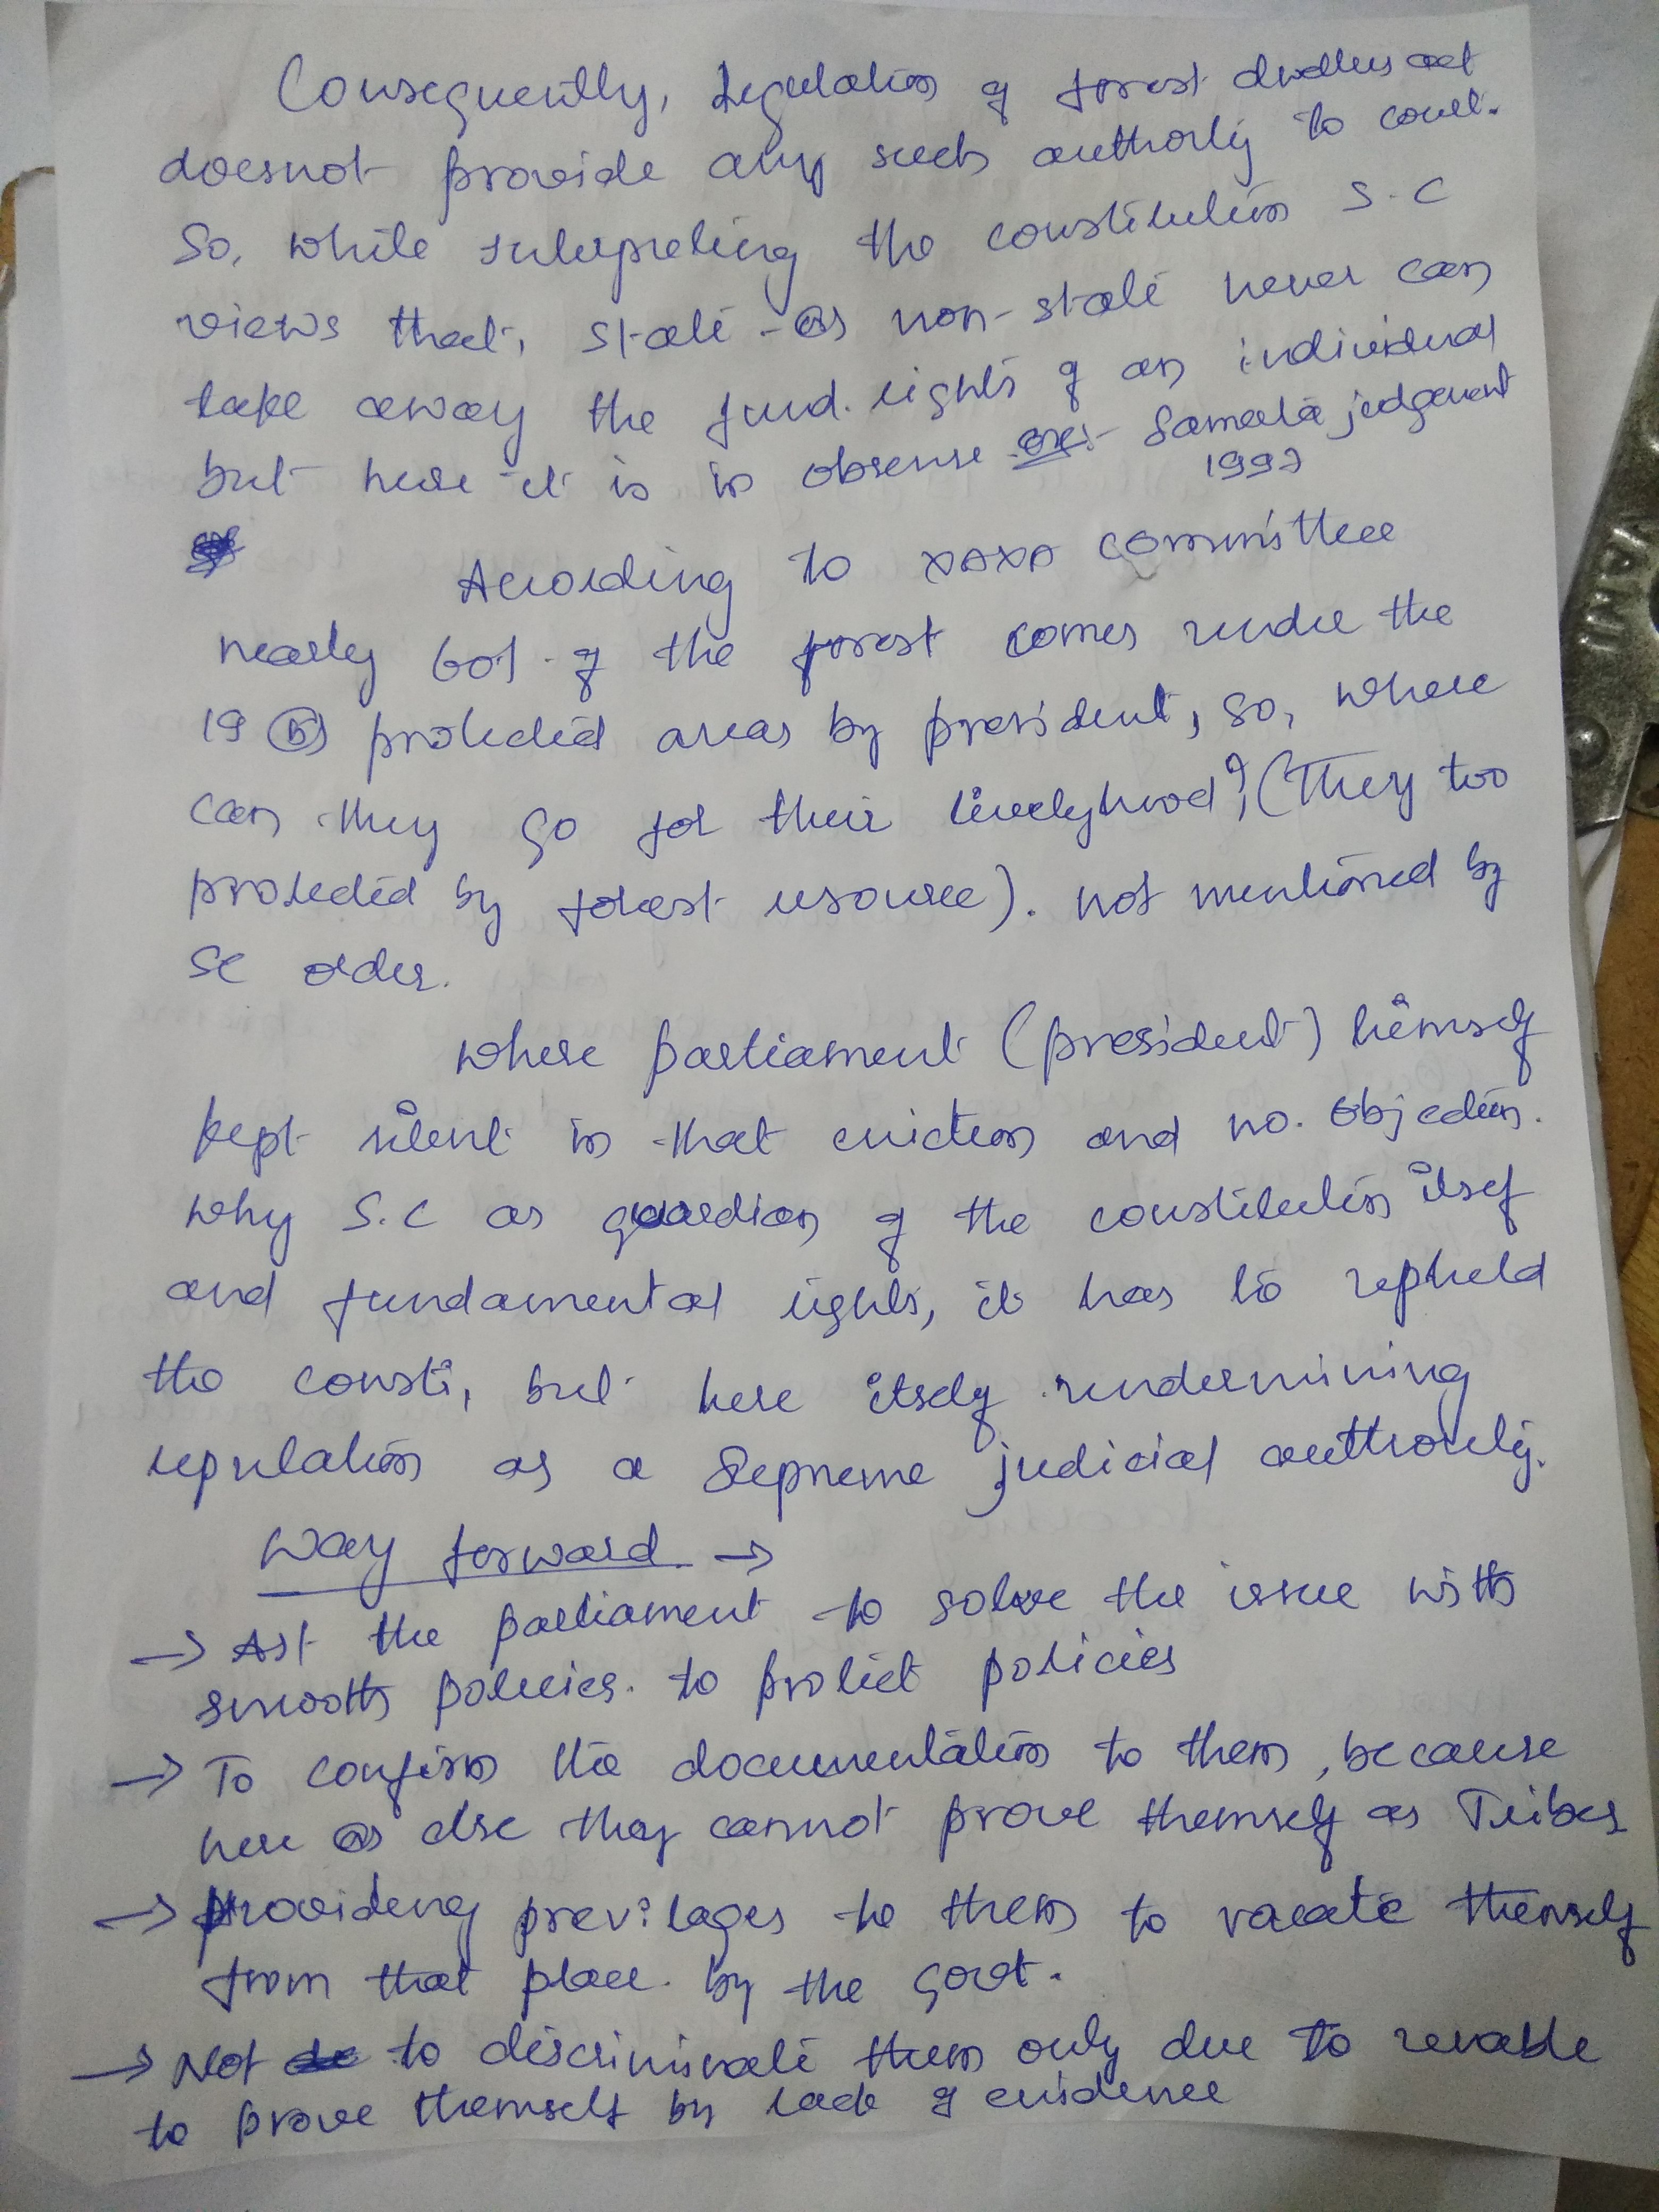 Consequently, Legulation of forest dwellers act
doesnot provide any such authority to court.
So, while interpreting the constitution S.C
views that, state or non-state never can
take away the fund. rights of an individual
but here it is in obsense ex:- Samata judgement
1997
According to XAXA committee
nearly 60% of the forest comes under the
19 protected areas by president, so, where
can they go for their livelyhood?, (They too
protected by forest resource). not mentioned by
SC order.
where parliament (president) himself
kept silent in that eviction and no. objection.
why S.C as guardian of the constitution itself
and fundamental rights, it has to upheld
the consti, but here itself undermining
reputation as a Supreme judicial authority.
Way forward →
→ Ask the parliament to solve the issue with
smooth policies. to protect policies
→ To confirm the documentation to them, because
here or else they cannot prove themself as Tribes
→ Providing previlages to them to vacate themself
from that place. by the Govt.
→ Not to discriminate them only due to unable
to prove themself by lack of evidence